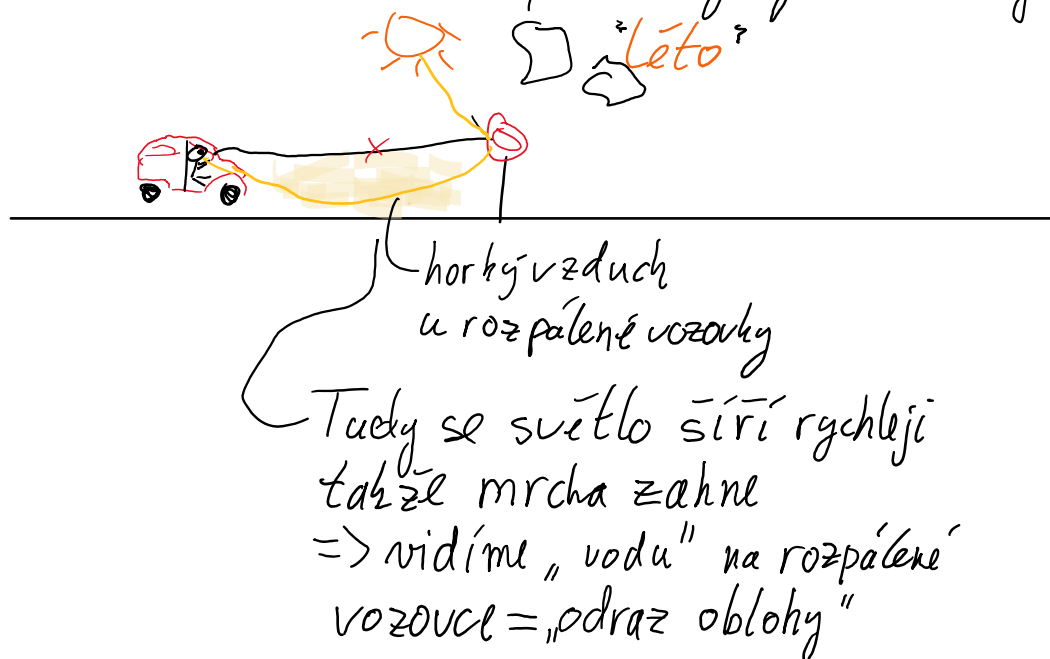 "Léto"
horký vzduch
u rozpálené vozovky
Tudy se světlo šíří rychleji
takže mrcha zahne
=> vidíme „vodu" na rozpálené
vozovce = „odraz oblohy"